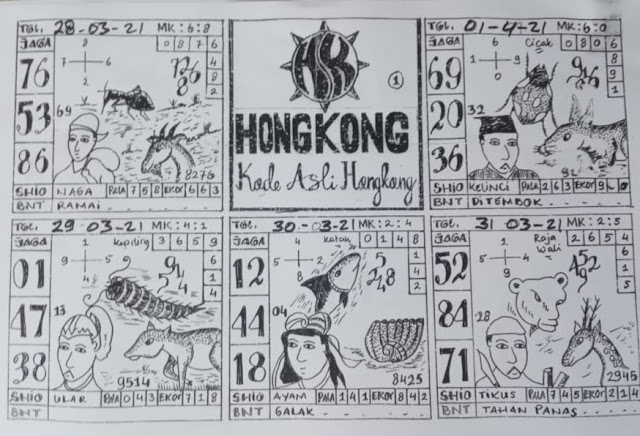 TGL. 28-03-21 MK:6:8
JAGA 8 0 8 7 6
76 7 6 4
2 8
53 69 2
86
8276
SHIO NAGA PALA 7 5 8 EKOR 6 6 3
BNT RAMAI
HSK
1
HONGKONG
Kode Asli Hongkong
TGL. 01-4-21 MK:6:0
JAGA 6 Cicak 0 8 0 6
69 1 9 8
4 9
20 32 1
36
SHIO KELINCI PALA 2 6 3 EKOR 9
BNT DITEMBOK
TGL. 29 03-21 MK:4:1
JAGA 1 Kepiting 3 6 5 9
01 5 9 6
4 1
47 13 4
38
9514
SHIO ULAR PALA 0 4 3 EKOR 7 1 8
BNT
TGL. 30-03-21 MK:2:4
JAGA 4 Katak 0 1 4 8
12 5 2 1
8 4
44 04 2
18
8425
SHIO AYAM PALA 1 4 1 EKOR 8 4 2
BNT GALAK
TGL. 31 03-21 MK:2:5
JAGA 5 Raja Wali 2 6 5 4
52 9 2 6
4 1
84 28 5
71
2945
SHIO TIKUS PALA 7 4 5 EKOR 2 1 4
BNT TAHAN PANAS